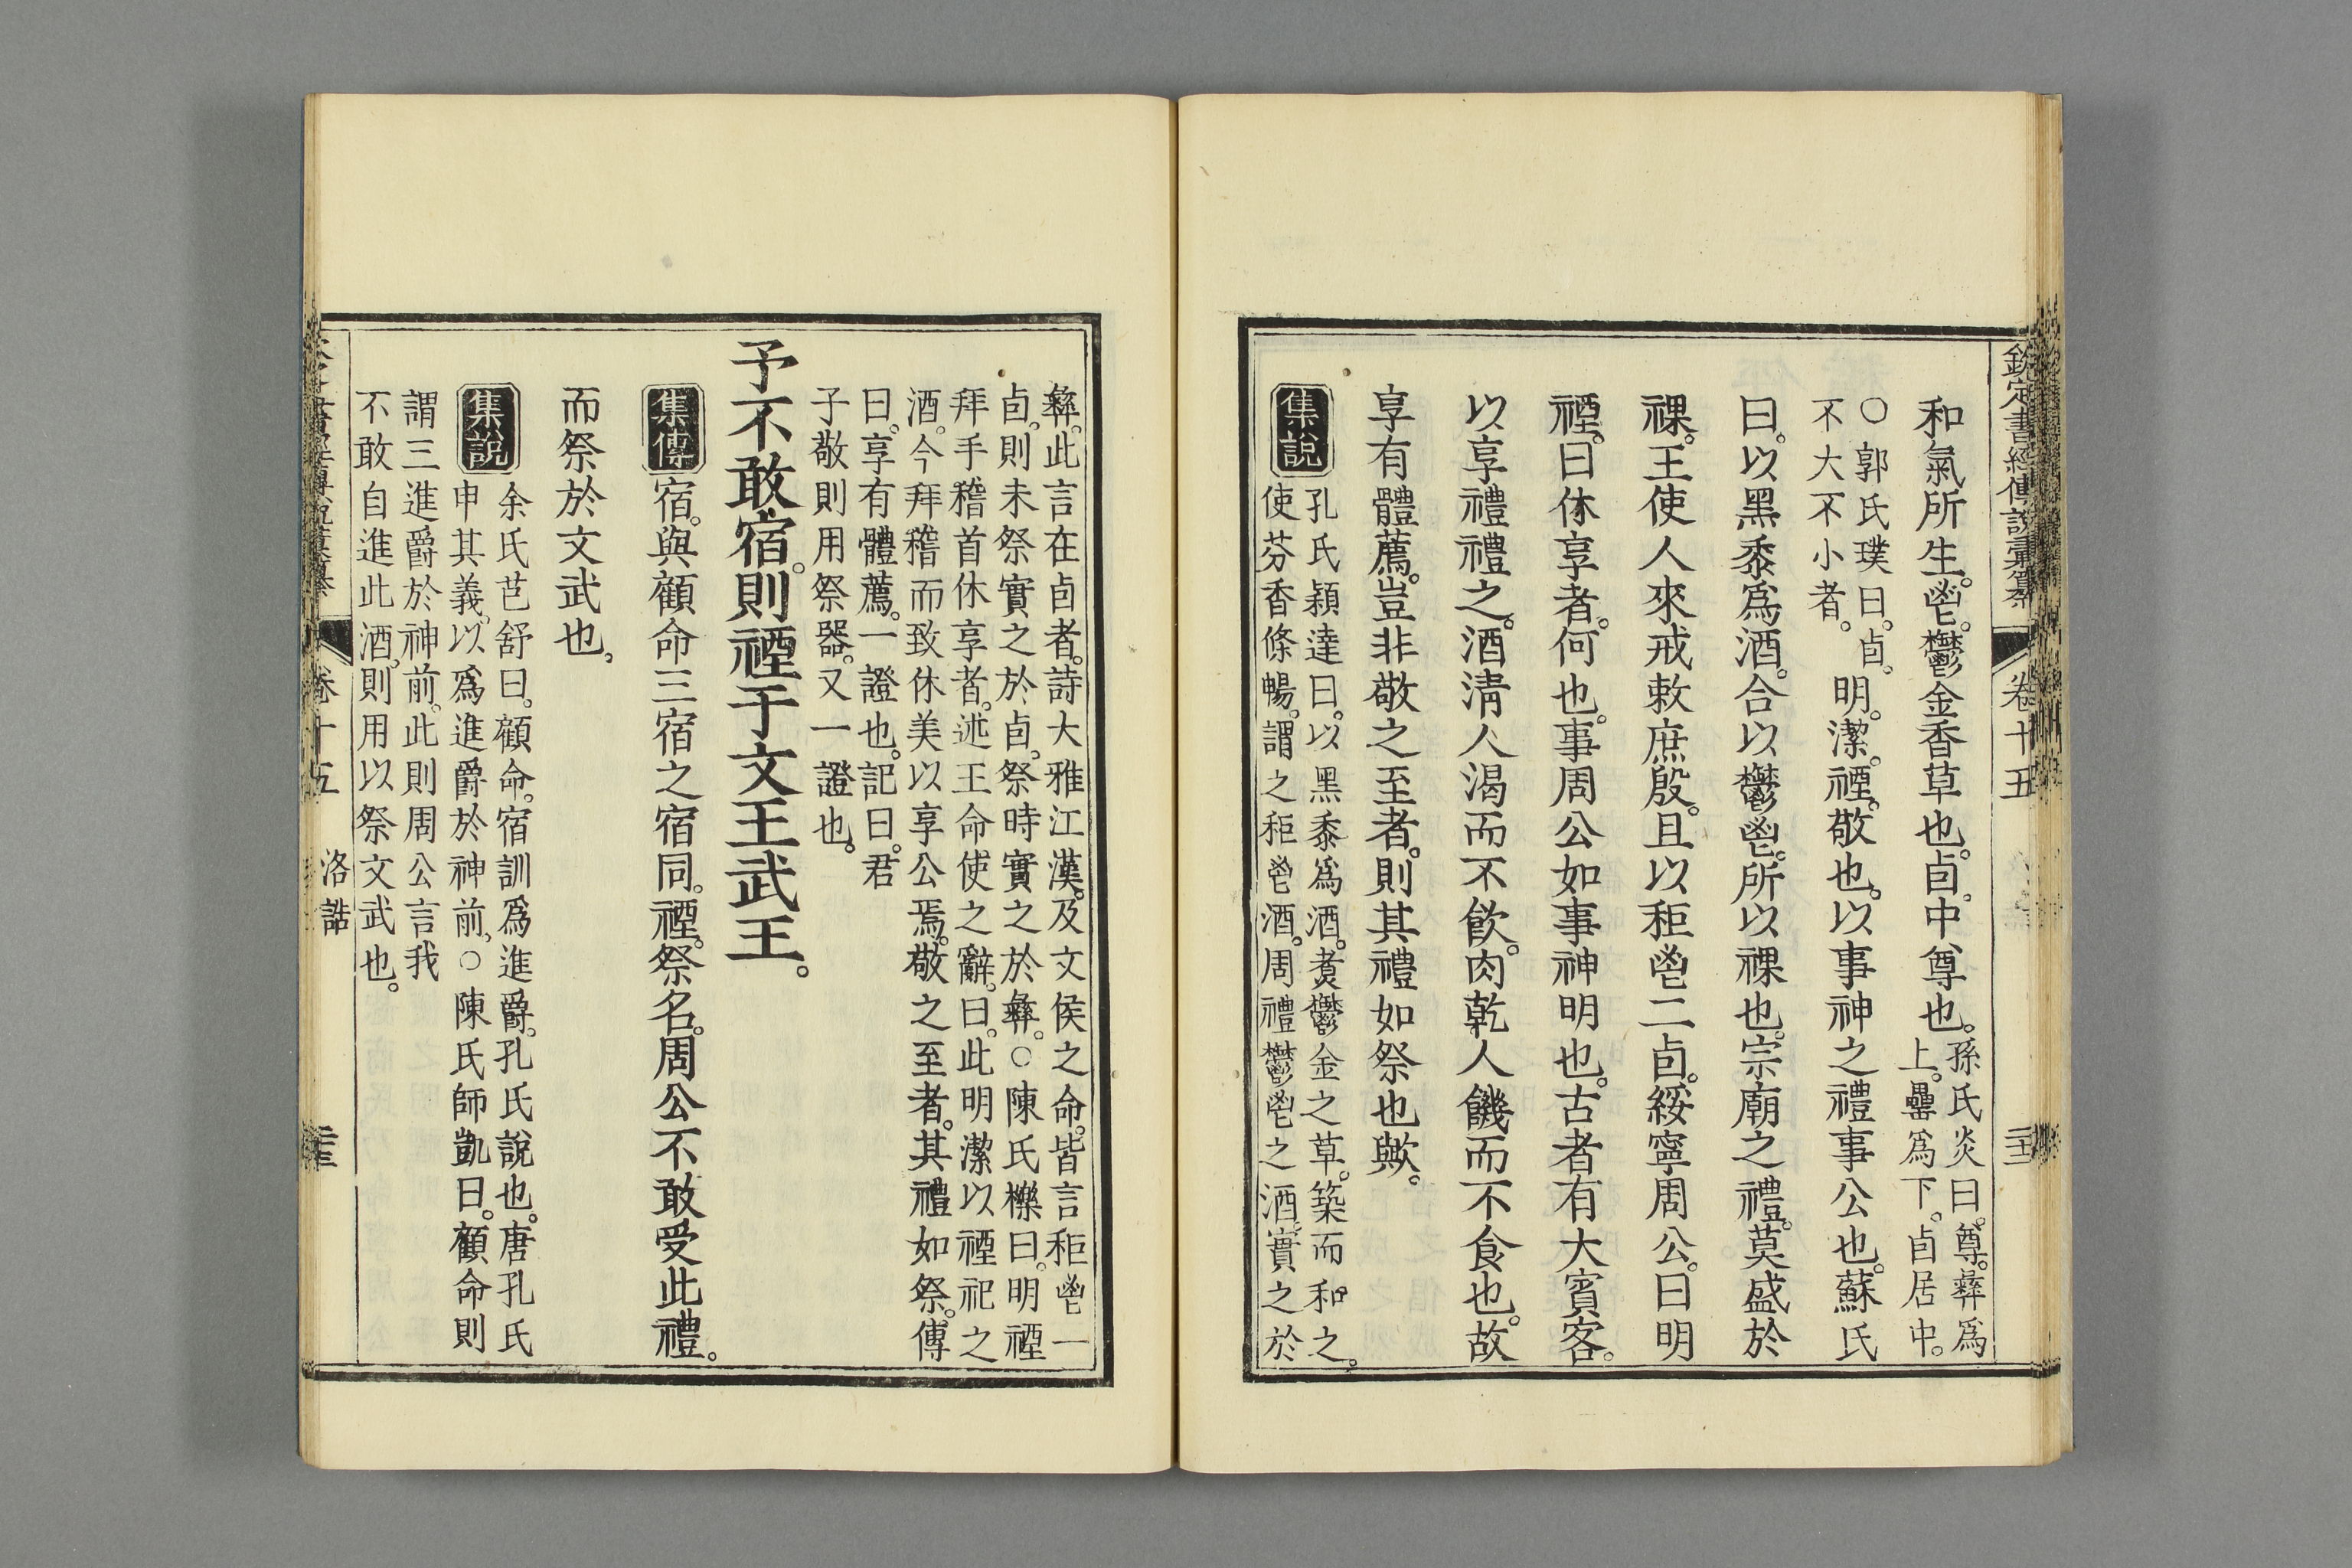 欽定書經傳說彙纂 卷十五
和氣所生。鬯。鬱金香草也。卣。中尊也。孫氏炎曰。尊。彝爲
上。罍爲下。卣居中。
○郭氏璞曰。卣。
不大不小者。明。潔。禋。敬也。以事神之禮事公也。蘇氏
曰。以黑黍爲酒。合以鬱鬯。所以祼也。宗廟之禮。莫盛於
祼。王使人來戒敕庶殷。且以秬鬯二卣。綏寧周公。曰明
禋。曰休享者。何也。事周公如事神明也。古者有大賓客。
以享禮禮之。酒清人渴而不飮。肉乾人饑而不食也。故
享有體薦。豈非敬之至者。則其禮如祭也歟。
集說
孔氏穎達曰。以黑黍爲酒。煑鬱金之草。築而和之。
使芬香條暢。謂之秬鬯酒。周禮鬱鬯之酒。實之於
彝。此言在卣者。詩大雅江漢。及文侯之命。皆言秬鬯一
卣。則未祭實之於卣。祭時實之於彝。○陳氏櫟曰。明禋
拜手稽首休享者。述王命使之辭。曰。此明潔以禋祀之
酒。今拜稽而致休美以享公焉。敬之至者。其禮如祭。傳
曰。享有體薦。一證也。記曰。君
子敬則用祭器。又一證也。
予不敢宿。則禋于文王武王。
集傳
宿。與顧命三宿之宿同。禋。祭名。周公不敢受此禮。
而祭於文武也。
集說
余氏芑舒曰。顧命。宿訓爲進爵。孔氏說也。唐孔氏
申其義。以爲進爵於神前。○陳氏師凱曰。顧命則
謂三進爵於神前。此則周公言我
不敢自進此酒。則用以祭文武也。
卷十五 洛誥